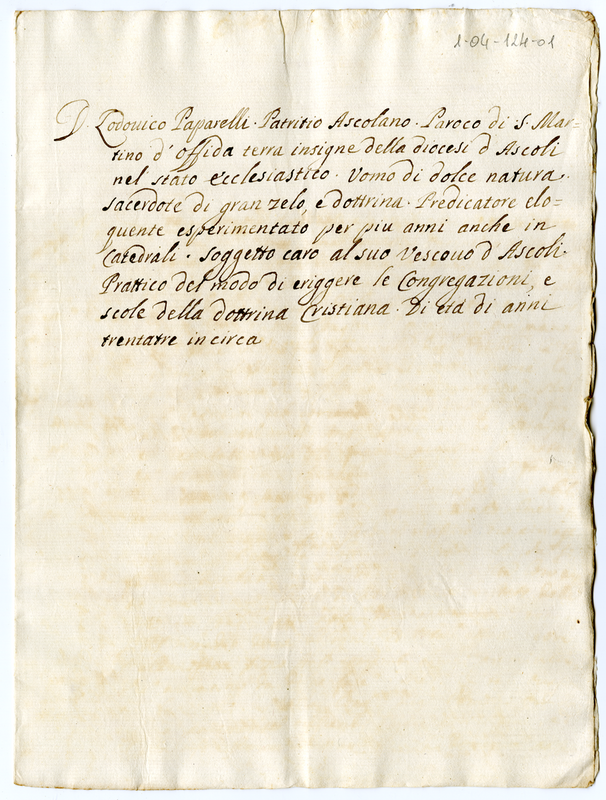 1-04-124-01
D. Lodovico Paparelli. Patritio Ascolano. Paroco di S. Mar=
tino d'offida terra insigne della diocesi d Ascoli
nel stato ecclesiastico. Vomo di dolce natura.
sacerdote di gran zelo, e dottrina. Predicatore elo=
quente esperimentato per piu anni anche in
Catedrali. soggetto caro al suo Vescovo d Ascoli.
Prattico del modo di eriggere le Congregazioni, e
scole della dottrina Cristiana. Di età di anni
trentatre in circa